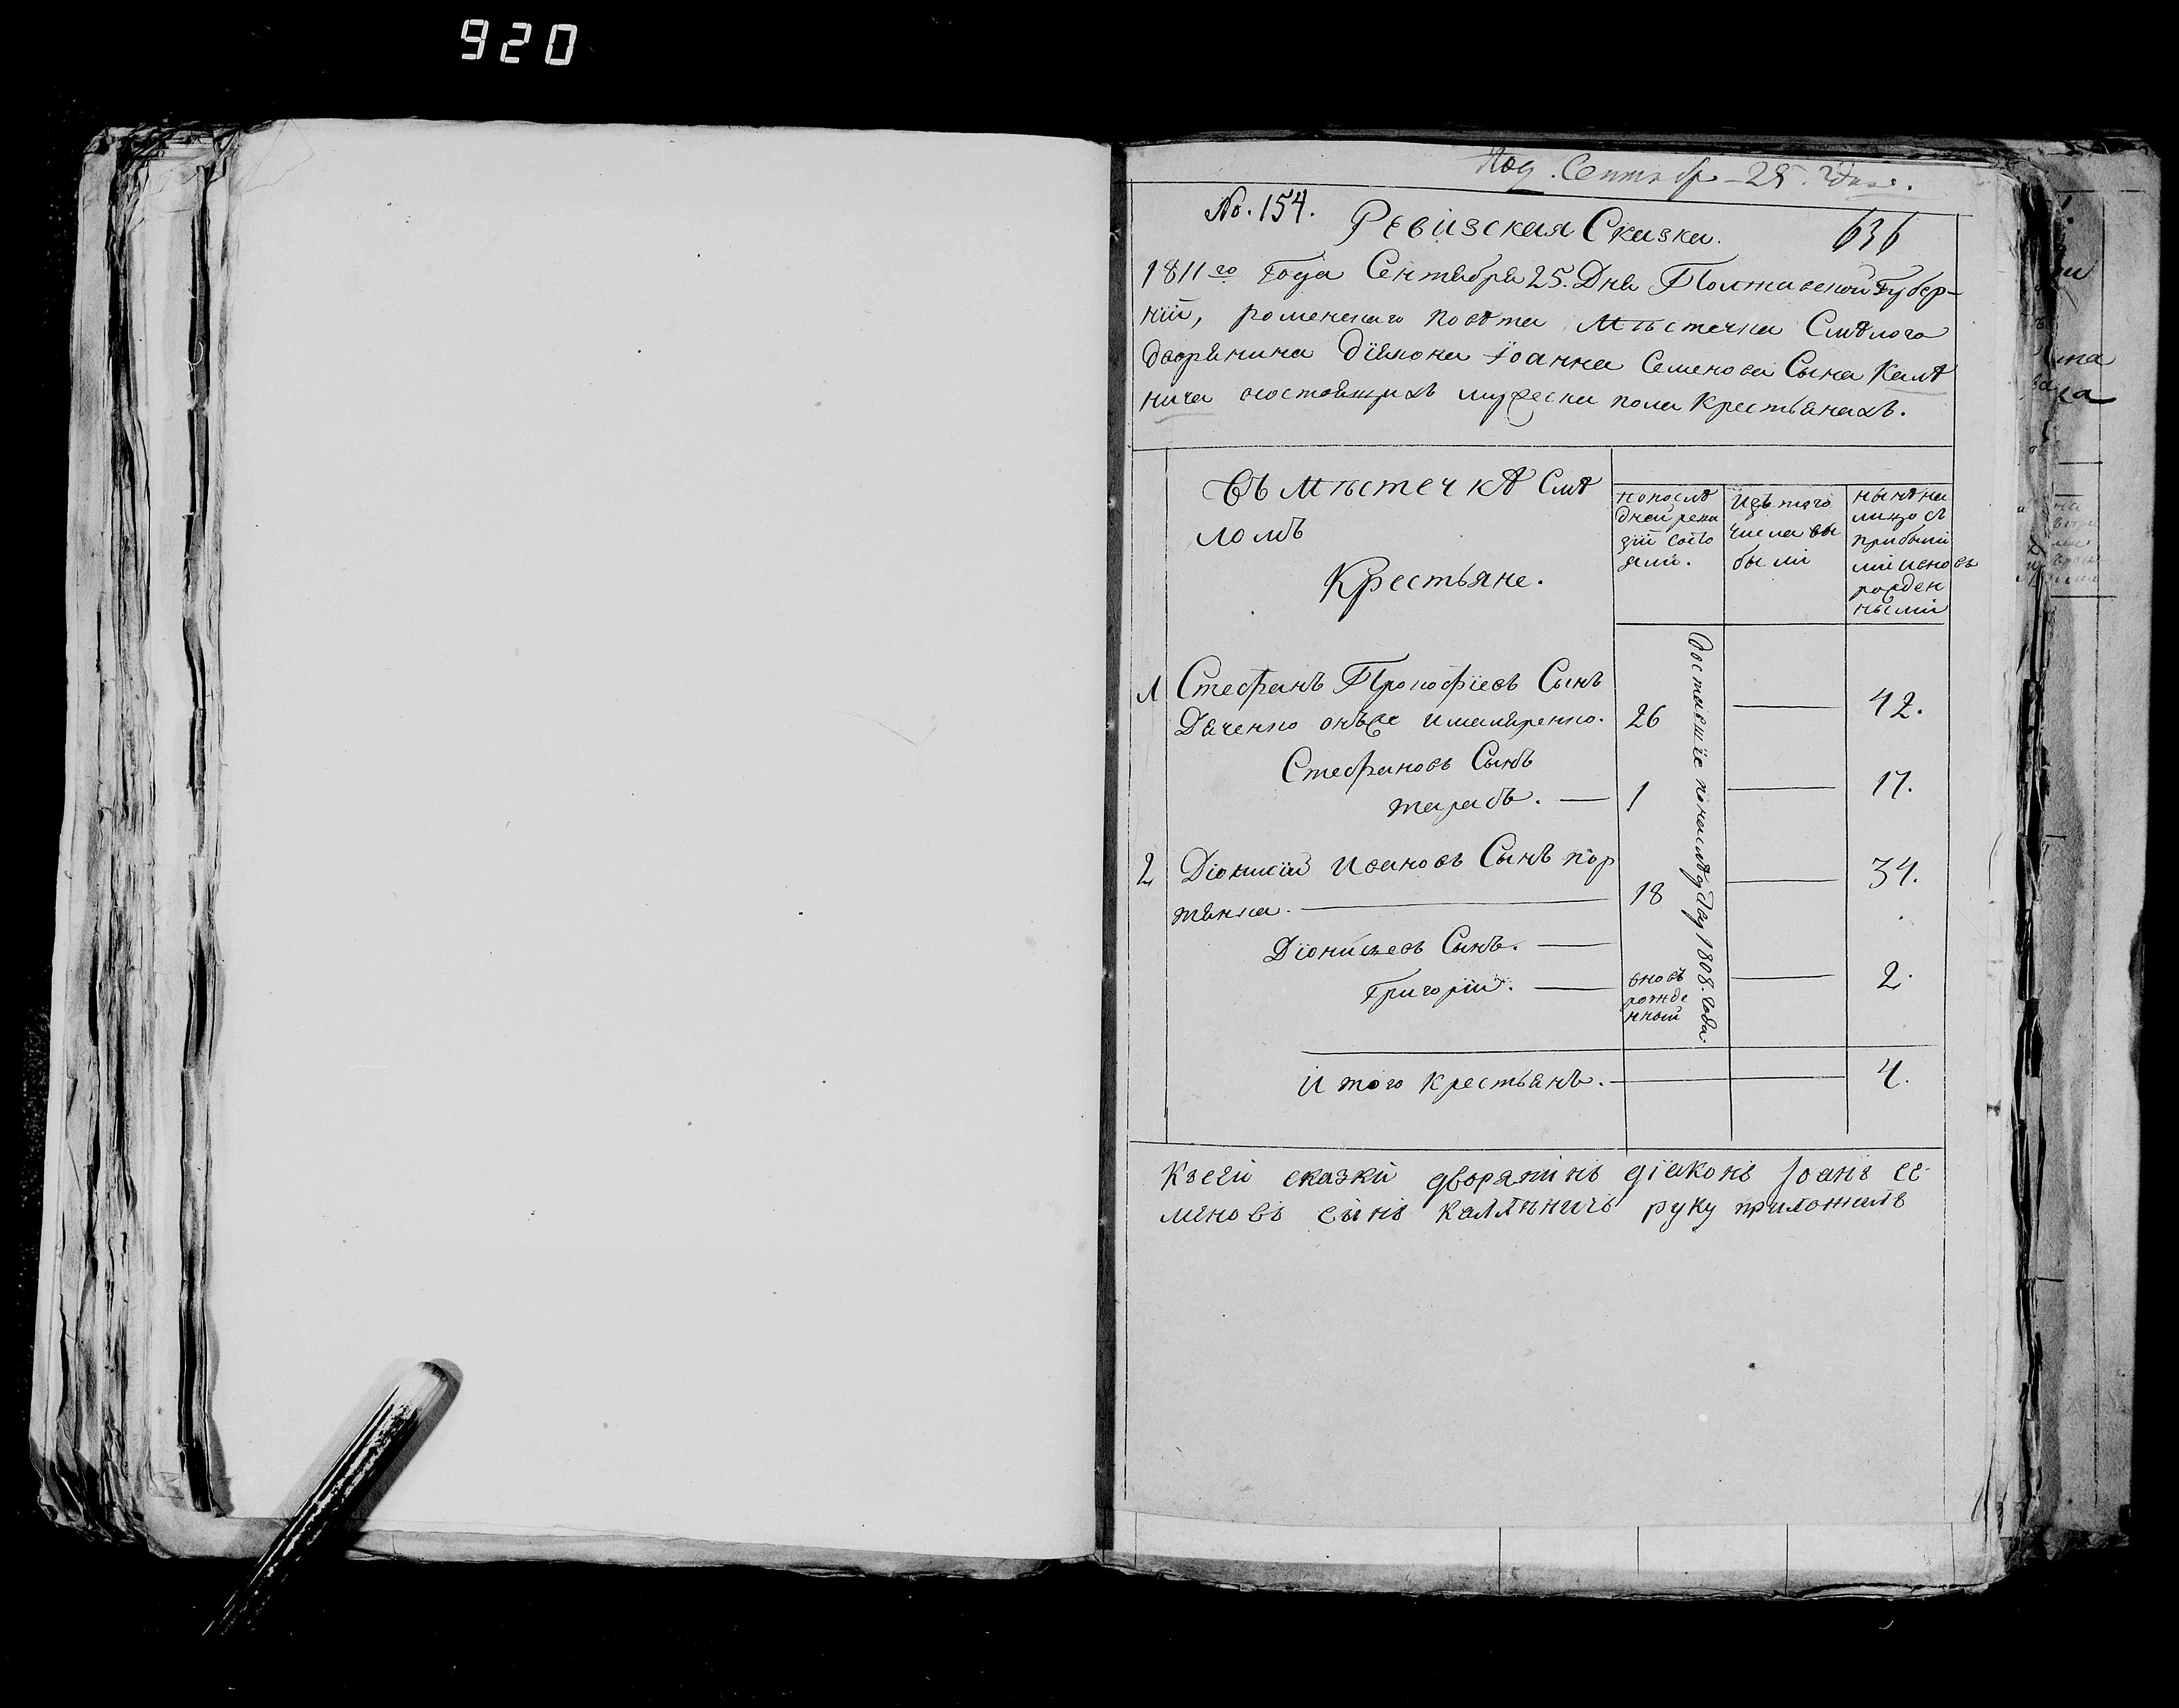 920
Под. Сентябр 25. дня.
No. 154.
Ревизская Сказка.
636
1811го Года Сентября 25. Дня Полтавской Губер-
нїи, роменскаго повѣта Мѣстечка Смѣлого
дворянина дїякона Їоанна Семенова Сына Калѣ
нича состоящихъ мужеска пола Крестьянахъ.
Въ Мѣстечкѣ Смѣ
ломъ
Крестьяне.
попослѣ
дней реви
зїи состо
яли.
Изъ того
числа вы
были
нынѣ на
лицо съ
прибыли
ми и вновь
рожден
ными
1 Стефанъ Прокофїевъ Сынъ
Дяченко онъже 26 42.
Стефановъ Сынъ
тарасъ. 1 17.
2 Дїонисїй Ивановъ Сынъ пор
тянка. 18 34.
Дїонисьевъ Сынъ.
Григорїй. вновь
рожде
нный 2.
Доставшїе по 1808. года
И того Крестьянъ. 4.
Ксей сказки дворянинъ дїяконъ Їоанъ се
меновъ сынъ калѣничъ руку приложилъ